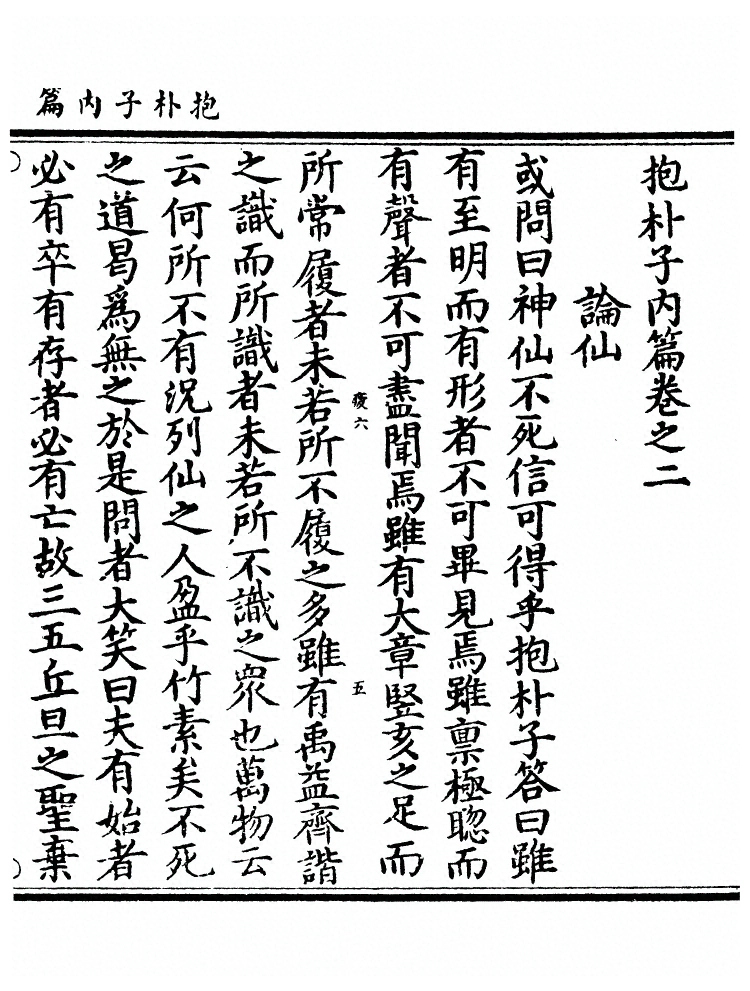 抱朴子内篇
抱朴子内篇卷之二
論仙
或問曰神仙不死信可得乎抱朴子答曰雖
有至明而有形者不可畢見焉雖禀極聰而
有聲者不可盡聞焉雖有大章竪亥之足而
疲六
五
所常履者未若所不履之多雖有禹益齊諧
之識而所識者未若所不識之衆也萬物云
云何所不有况列仙之人盈乎竹素矣不死
之道曷爲無之於是問者大笑曰夫有始者
必有卒有存者必有亡故三五丘旦之聖棄